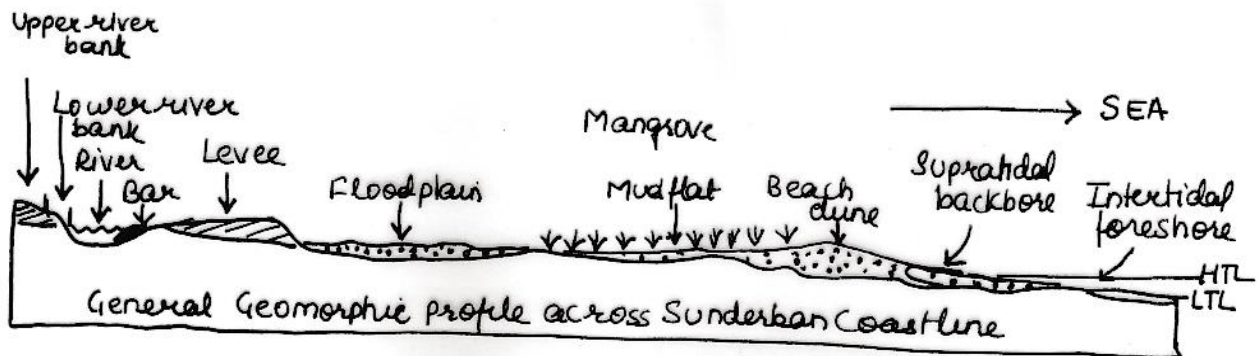 Upper river
bank
Lower river
bank
River
Bar
Levee
Floodplain
Mangrove
Mudflat
Beach
dune
→ SEA
Supratidal
backbore
Intertidal
foreshore
HTL
LTL
General Geomorphic profile across Sunderban Coastline